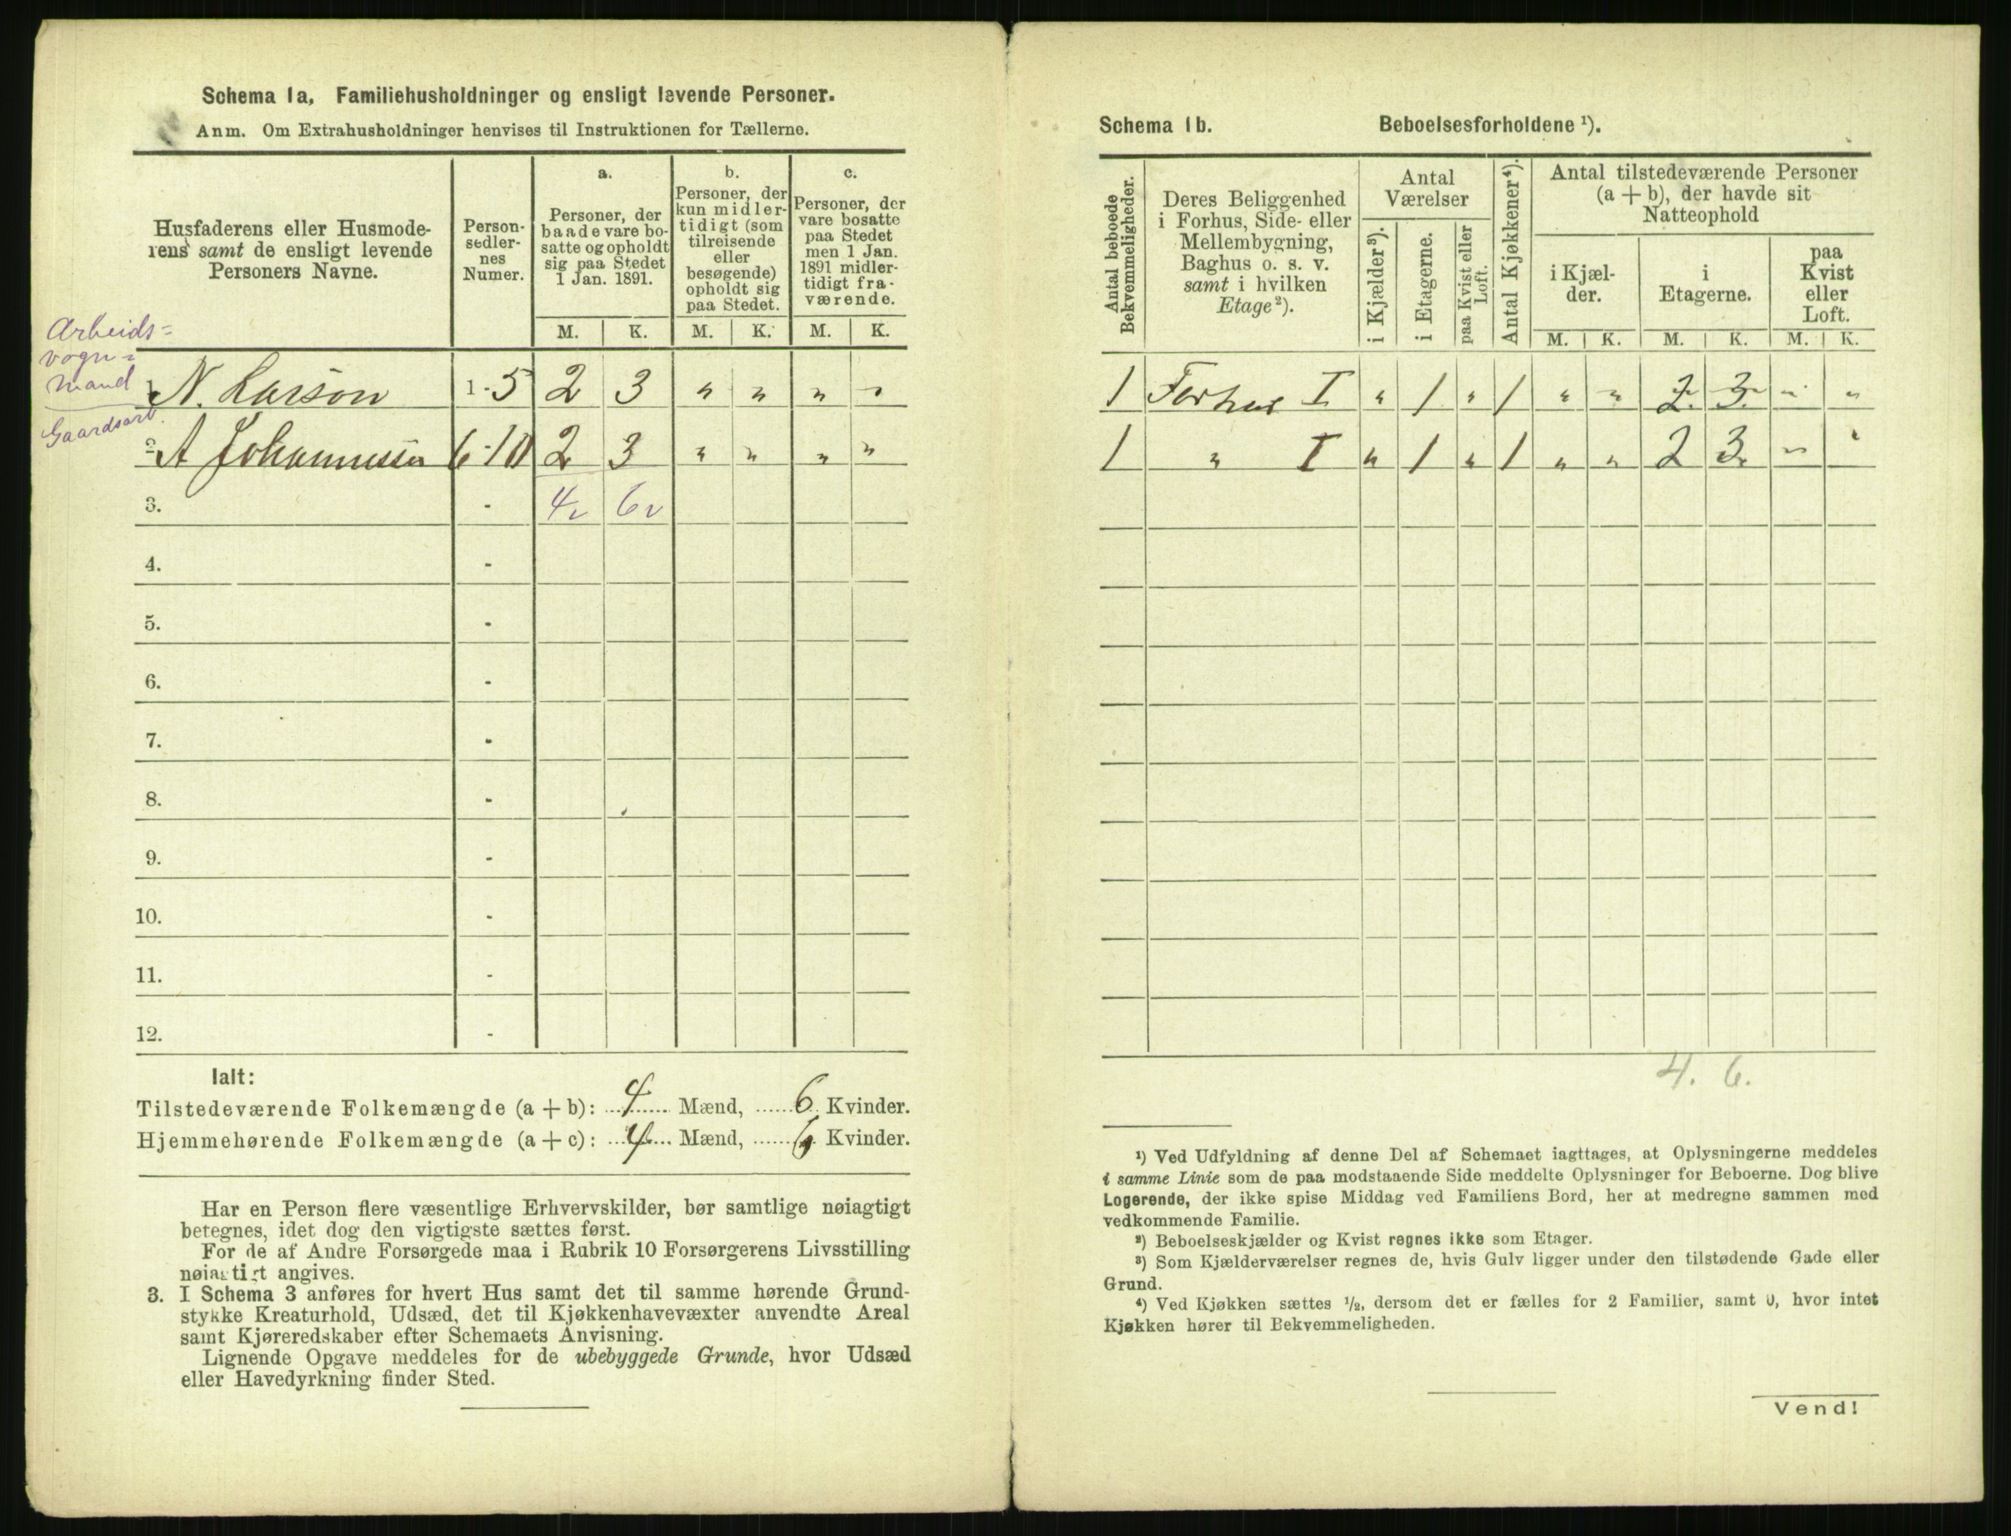 Schema 1a, Familiehusholdninger og ensligt levende Personer.
Anm. Om Extrahusholdninger henvises til Instruktionen for Tællerne.
Husfaderens eller Husmode-
rens samt de ensligt levende
Personers Navne.
Person-
sedler-
nes
Numer.
a.
Personer, der
baade vare bo-
satte og opholdt
sig paa Stedet
1 Jan. 1891.
b.
Personer, der
kun midler-
tidigt (som
tilreisende
eller
besøgende)
opholdt sig
paa Stedet.
c.
Personer, der
vare bosatte
paa Stedet
men 1 Jan.
1891 midler-
tidigt fra-
værende.
M. K. M. K. M. K.
Arbeids-
vogn-
mand
1. N. Larson 1-5 2 3 " " " "
Gaardsarb.
2. A Johannessen 6-10 2 3 " " " "
3. - 4 6
4. -
5. -
6. -
7. -
8. -
9. -
10. -
11. -
12. -
Ialt:
Tilstedeværende Folkemængde (a + b): 4 Mænd, 6 Kvinder.
Hjemmehørende Folkemængde (a + c): 4 Mænd, 6 Kvinder.
Har en Person flere væsentlige Erhvervskilder, bør samtlige nøiagtigt
betegnes, idet dog den vigtigste sættes først.
For de af Andre Forsørgede maa i Rubrik 10 Forsørgerens Livsstilling
nøiagtigt angives.
3. I Schema 3 anføres for hvert Hus samt det til samme hørende Grund-
stykke Kreaturhold, Udsæd, det til Kjøkkenhavevæxter anvendte Areal
samt Kjøreredskaber efter Schemaets Anvisning.
Lignende Opgave meddeles for de ubebyggede Grunde, hvor Udsæd
eller Havedyrkning finder Sted.
Schema 1b. Beboelsesforholdene ¹).
Antal beboede
Bekvemmeligheder.
Deres Beliggenhed
i Forhus, Side- eller
Mellembygning,
Baghus o. s. v.
samt i hvilken
Etage ²).
Antal
Værelser
i Kjælder ³).
i Etagerne.
paa Kvist eller
Loft.
Antal Kjøkkener ⁴).
Antal tilstedeværende Personer
(a + b), der havde sit
Natteophold
i Kjæl-
der.
i
Etagerne.
paa
Kvist
eller
Loft.
M. K. M. K. M. K.
1 Forhus I " 1 " 1 " " 2 3 " "
1 " I " 1 " 1 " " 2 3 " "
4. 6.
¹) Ved Udfyldning af denne Del af Schemaet iagttages, at Oplysningerne meddeles
i samme Linie som de paa modstaaende Side meddelte Oplysninger for Beboerne. Dog blive
Logerende, der ikke spise Middag ved Familiens Bord, her at medregne sammen med
vedkommende Familie.
²) Beboelseskjælder og Kvist regnes ikke som Etager.
³) Som Kjælderværelser regnes de, hvis Gulv ligger under den tilstødende Gade eller
Grund.
⁴) Ved Kjøkken sættes ½, dersom det er fælles for 2 Familier, samt 0, hvor intet
Kjøkken hører til Bekvemmeligheden.
Vend!